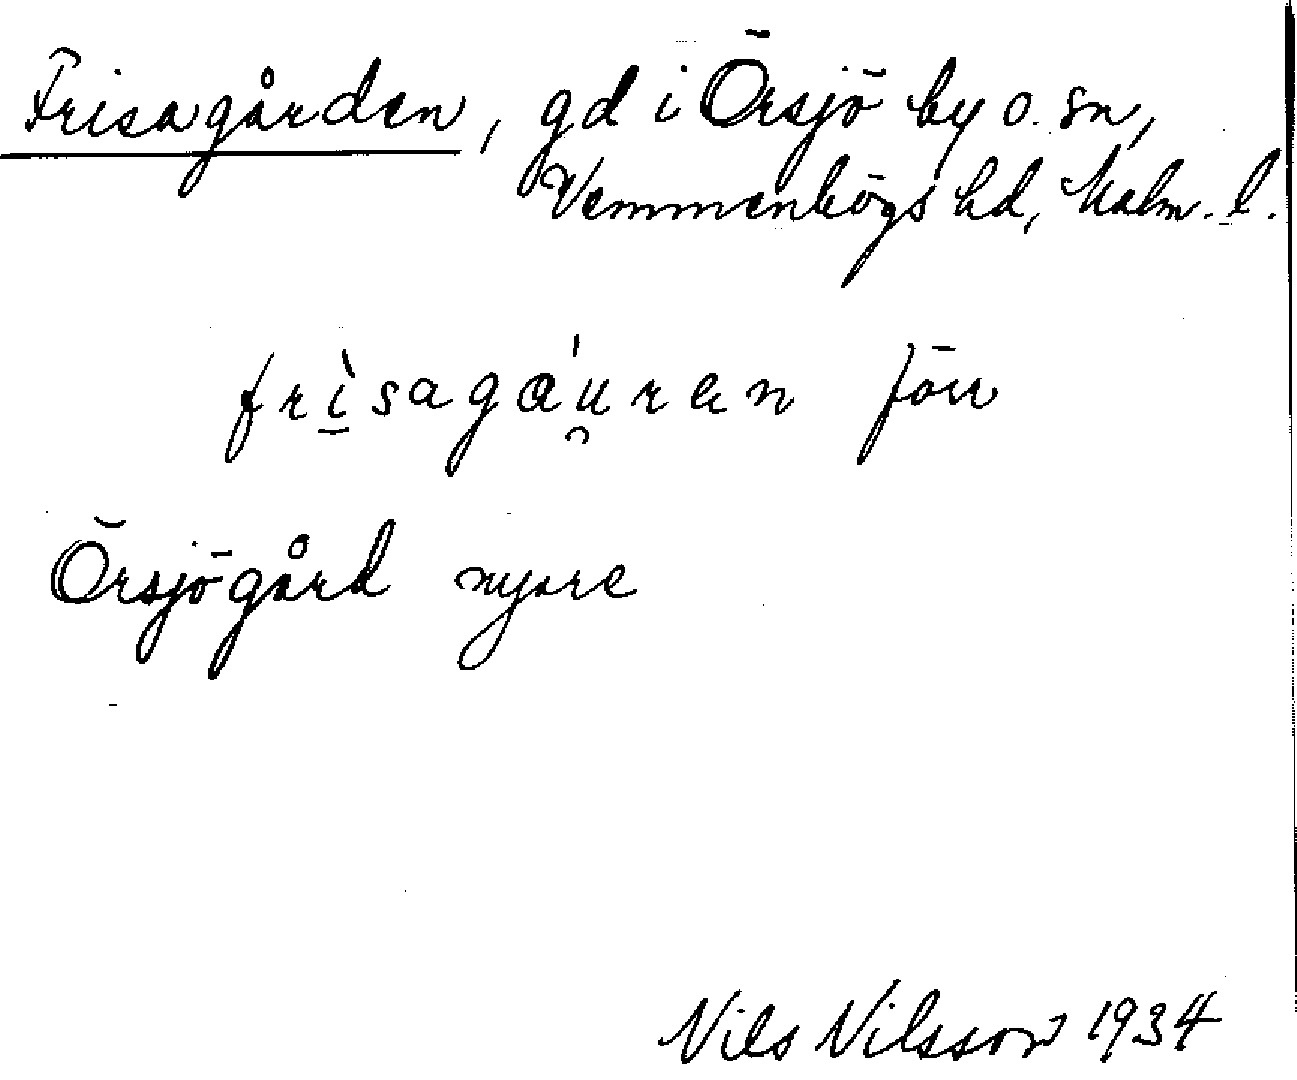 Frisagården, gd i Örsjö by o. sn,
Vemmenhögs hd, Malm. l.
frìsagáu̯ran förr
Örsjögård nyare
Nils Nilsson 1934